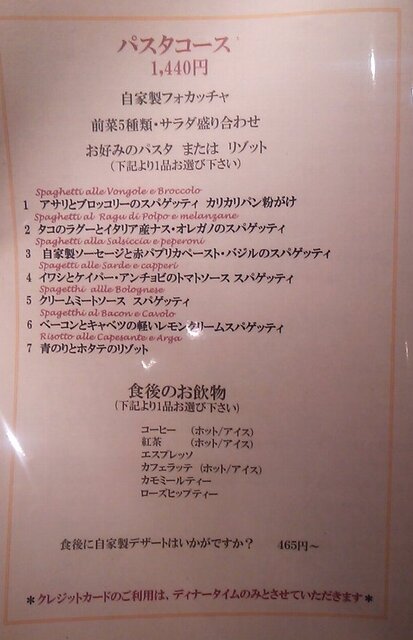 パスタコース
1,440円
自家製フォカッチャ
前菜5種類・サラダ盛り合わせ
お好みのパスタ または リゾット
(下記より1品お選び下さい)
Spaghetti alle Vongole e Broccolo
1 アサリとブロッコリーのスパゲッティ カリカリパン粉がけ
Spaghetti al Ragu di Polpo e melanzane
2 タコのラグーとイタリア産ナス・オレガノのスパゲッティ
Spaghetti alla Salsiccia e peperoni
3 自家製ソーセージと赤パプリカペースト・バジルのスパゲッティ
Spagetti alle Sarde e capperi
4 イワシとケイパー・アンチョビのトマトソース スパゲッティ
Spagetthi allle Bolognese
5 クリームミートソース スパゲッティ
Spagetthi al Bacon e Cavolo
6 ベーコンとキャベツの軽いレモンクリームスパゲッティ
Risotto alle Capesante e Arga
7 青のりとホタテのリゾット
食後のお飲物
(下記より1品お選び下さい)
コーヒー (ホット/アイス)
紅茶 (ホット/アイス)
エスプレッソ
カフェラッテ (ホット/アイス)
カモミールティー
ローズヒップティー
食後に自家製デザートはいかがですか? 465円~
*クレジットカードのご利用は、ディナータイムのみとさせていただきます*